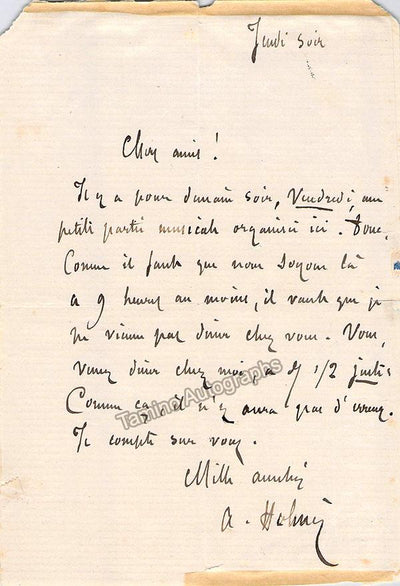 Jeudi soir
Cher ami!
Il y a pour demain soir, Vendredi, une
petite partie musicale organisée ici. Donc,
Comme il faut que nous soyons là
à 9 heures au moins, il vaut que je
ne vienne pas dîner chez vous. Vous,
venez dîner chez moi à 1/2 juste
Comme ça, il n'y aura pas d'erreur.
Je compte sur vous.
Mille amitiés
A. Holmès
Tamino Autographs